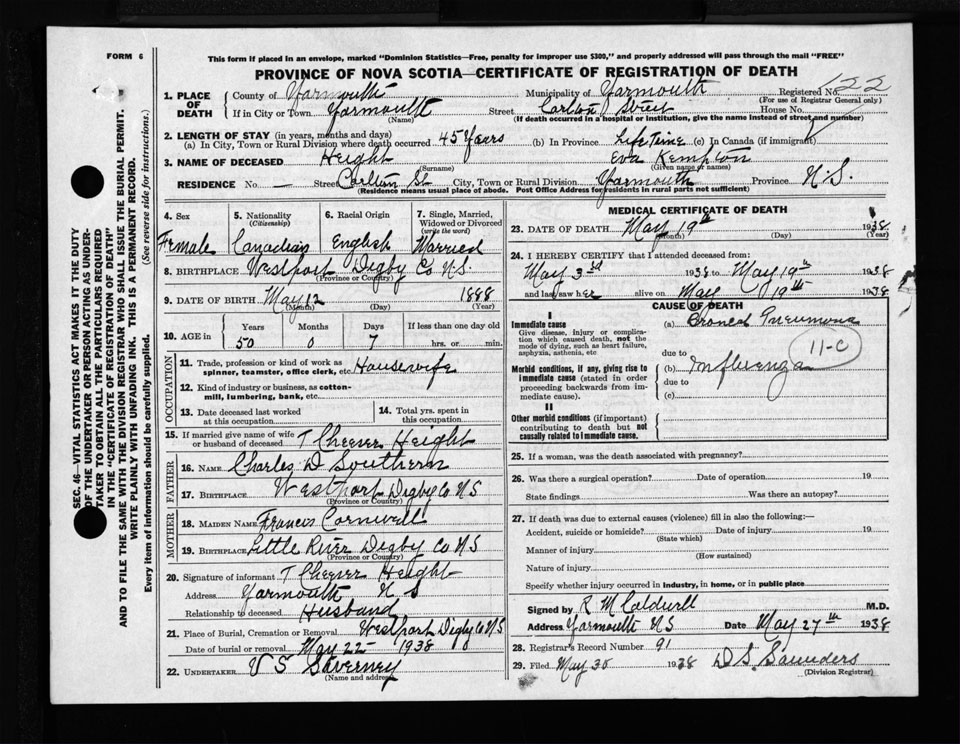 FORM 6
This form if placed in an envelope, marked "Dominion Statistics—Free, penalty for improper use $300," and properly addressed will pass through the mail "FREE"
PROVINCE OF NOVA SCOTIA—CERTIFICATE OF REGISTRATION OF DEATH
SEC. 46—VITAL STATISTICS ACT MAKES IT THE DUTY
OF THE UNDERTAKER OR PERSON ACTING AS UNDER-
TAKER TO OBTAIN ALL THE PARTICULARS REQUIRED
IN THE "CERTIFICATE OF REGISTRATION OF DEATH"
AND TO FILE THE SAME WITH THE DIVISION REGISTRAR WHO SHALL ISSUE THE BURIAL PERMIT.
WRITE PLAINLY WITH UNFADING INK. THIS IS A PERMANENT RECORD.
Every item of information should be carefully supplied. (See reverse side for instructions.)
1. PLACE OF DEATH County of Yarmouth Municipality of Yarmouth Registered No. 122
(For use of Registrar General only)
If in City or Town Yarmouth Street Carlton Street House No.
(Name) (If death occurred in a hospital or institution, give the name instead of street and number)
2. LENGTH OF STAY (in years, months and days)
(a) In City, Town or Rural Division where death occurred 45 Years (b) In Province Life Time (c) In Canada (if immigrant)
3. NAME OF DECEASED Height Eva Kempton
(Surname) (Given name or names)
RESIDENCE No. — Street Carlton St City, Town or Rural Division Yarmouth Province N.S.
(Residence means usual place of abode. Post Office Address for residents in rural parts not sufficient)
4. Sex 5. Nationality (Citizenship) 6. Racial Origin 7. Single, Married, Widowed or Divorced (write the word)
Female Canadian English Married
8. BIRTHPLACE Westport Digby Co N.S.
(Province or Country)
9. DATE OF BIRTH May 12 1888
(Month) (Day) (Year)
10. AGE in Years Months Days If less than one day old
50 0 7 hrs. or min.
OCCUPATION
11. Trade, profession or kind of work as spinner, teamster, office clerk, etc. Housewife
12. Kind of industry or business, as cotton-mill, lumbering, bank, etc.
13. Date deceased last worked at this occupation
14. Total yrs. spent in this occupation
15. If married give name of wife or husband of deceased T Cheever Height
FATHER
16. NAME Charles D Southern
17. BIRTHPLACE Westport Digby Co NS
(Province or Country)
MOTHER
18. MAIDEN NAME Francis Cornwell
19. BIRTHPLACE Little River Digby Co NS
(Province or Country)
20. Signature of informant T Cheever Height
Address Yarmouth N S
Relationship to deceased Husband
21. Place of Burial, Cremation or Removal Westport Digby Co NS
Date of burial or removal May 22 1938
22. UNDERTAKER V S Sweeney
(Name and address)
MEDICAL CERTIFICATE OF DEATH
23. DATE OF DEATH May 19th 1938
(Month) (Day) (Year)
24. I HEREBY CERTIFY that I attended deceased from:
May 3rd 1938 to May 19th 1938
and last saw her alive on May 19th 1938
CAUSE OF DEATH
I
Immediate cause
Give disease, injury or complication which caused death, not the mode of dying, such as heart failure, asphyxia, asthenia, etc
(a) Pneumona
due to
11-C
Morbid conditions, if any, giving rise to immediate cause (stated in order proceeding backwards from immediate cause).
(b) Influenza
due to
(c)
II
Other morbid conditions (if important) contributing to death but not causally related to immediate cause.
25. If a woman, was the death associated with pregnancy?
26. Was there a surgical operation? Date of operation 19
State findings Was there an autopsy?
27. If death was due to external causes (violence) fill in also the following:—
Accident, suicide or homicide? Date of injury 19
(State which)
Manner of injury
(How sustained)
Nature of injury
Specify whether injury occurred in industry, in home, or in public place
Signed by R M Caldwell M.D.
Address Yarmouth NS Date May 27th 1938
28. Registrar's Record Number 91
29. Filed May 30 1938 D S Saunders
(Division Registrar)